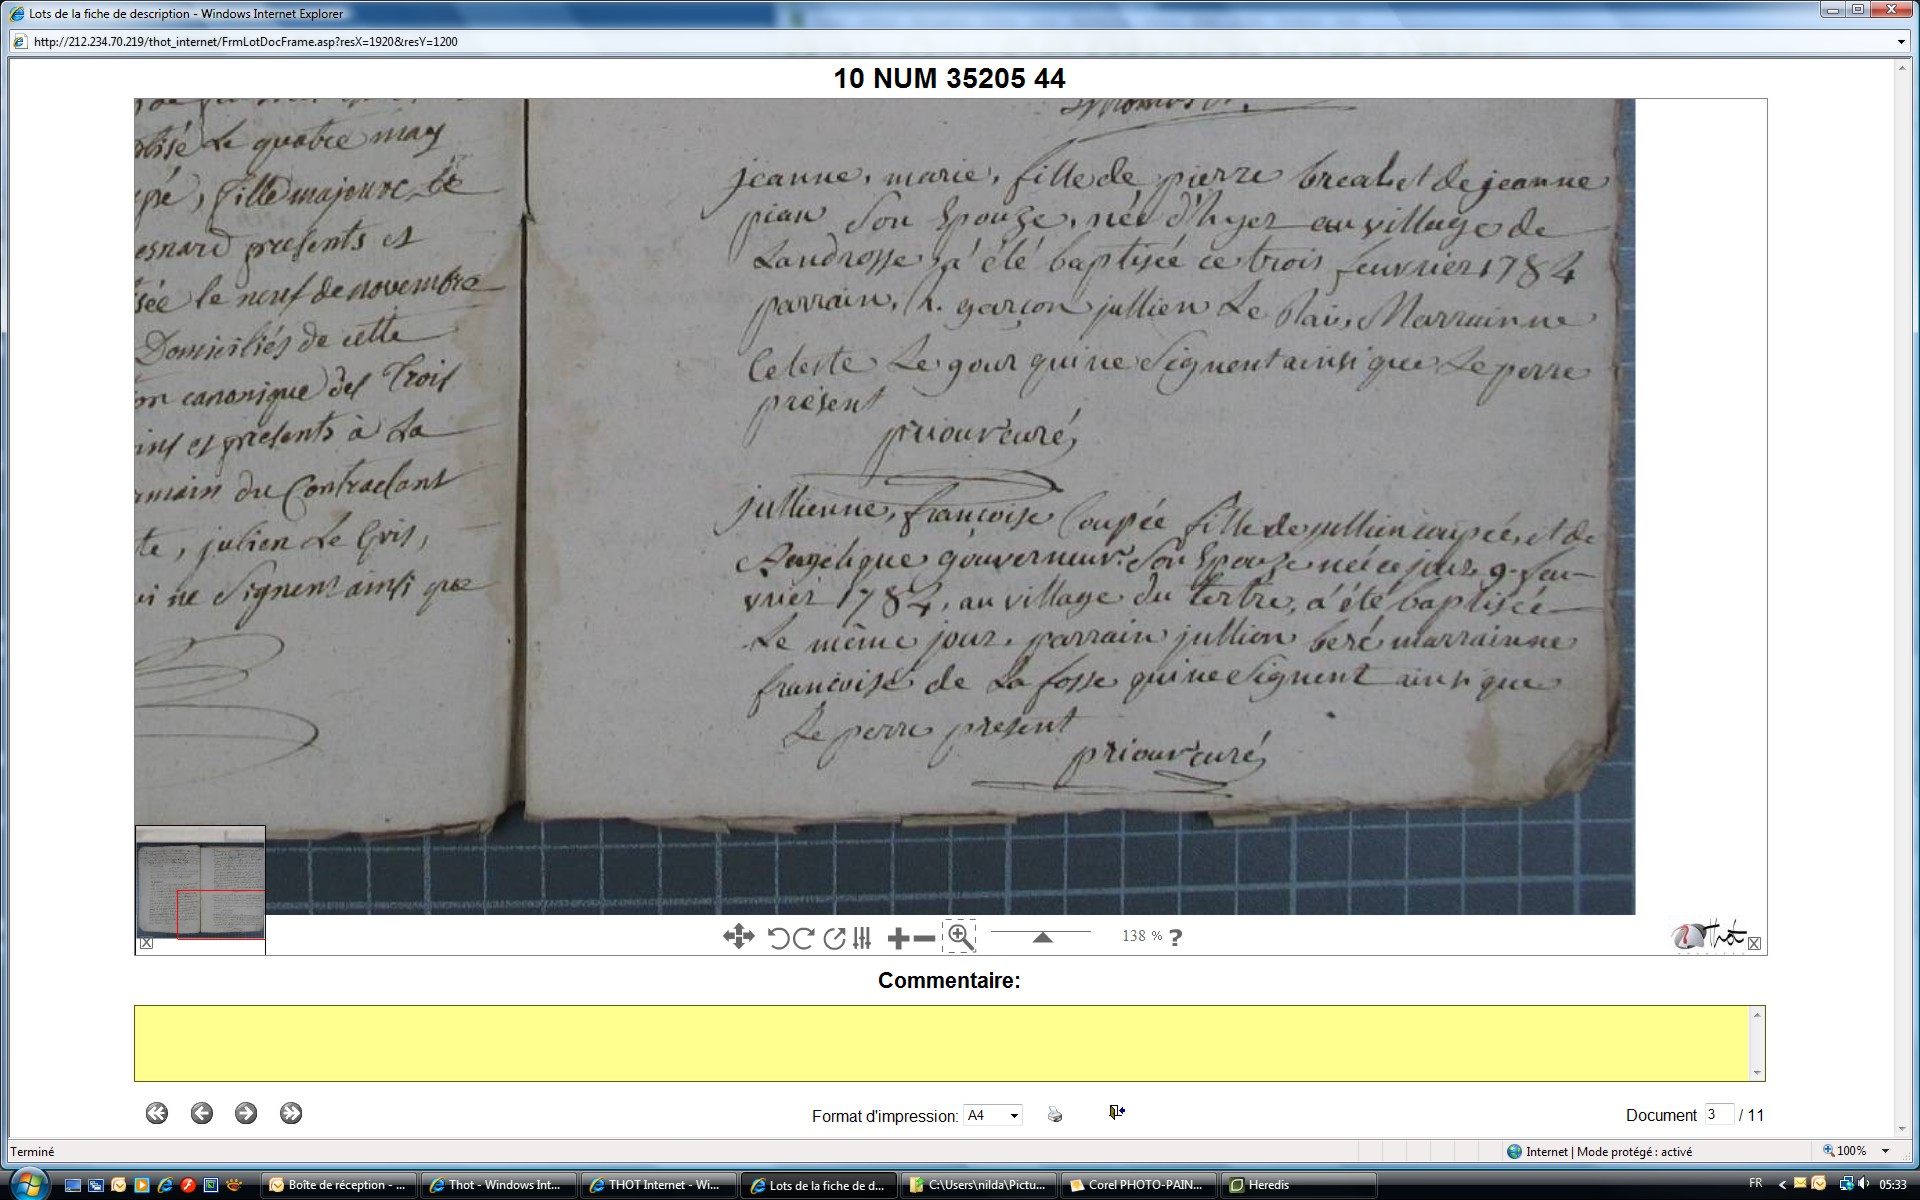 Lots de la fiche de description - Windows Internet Explorer
http://212.234.70.219/thot_internet/FrmLotDocFrame.asp?resX=1920&resY=1200
10 NUM 35205 44
Le quatre may
fille majeure de
presents et
le neuf de novembre
Domiciliés de cette
canonique des Trois
et presents à La
du Contractant
julien Le Gris,
ne signent ainsi que
jeanne, marie, fille de pierre brealet de jeanne
pian son Epouze, née d'hyer au village de
Landrosse, a été baptisée ce trois feuvrier 1784
parrain, h. garçon jullien Le Marrainne
Celeste Le gour qui ne signent ainsi que Le perre
présent
priour curé,
jullienne, françoise Coupée fille de jullien coupée, et de
Angélique gouverneur son Epouze née ce jour 9. feu-
vrier 1784, au village du tertre, a été baptisée
Le même jour, parrain jullien beré marrainne
francoise de La fosse qui ne signent ainsi que
Le perre present
priour curé,
138 % ?
Thot
Commentaire:
Format d'impression: A4
Document 3 / 11
Terminé
Internet | Mode protégé : activé
100%
Boîte de réception - ...
Thot - Windows Int...
THOT Internet - Wi...
Lots de la fiche de d...
C:\Users\nilda\Pictu...
Corel PHOTO-PAIN...
Heredis
FR
05:33